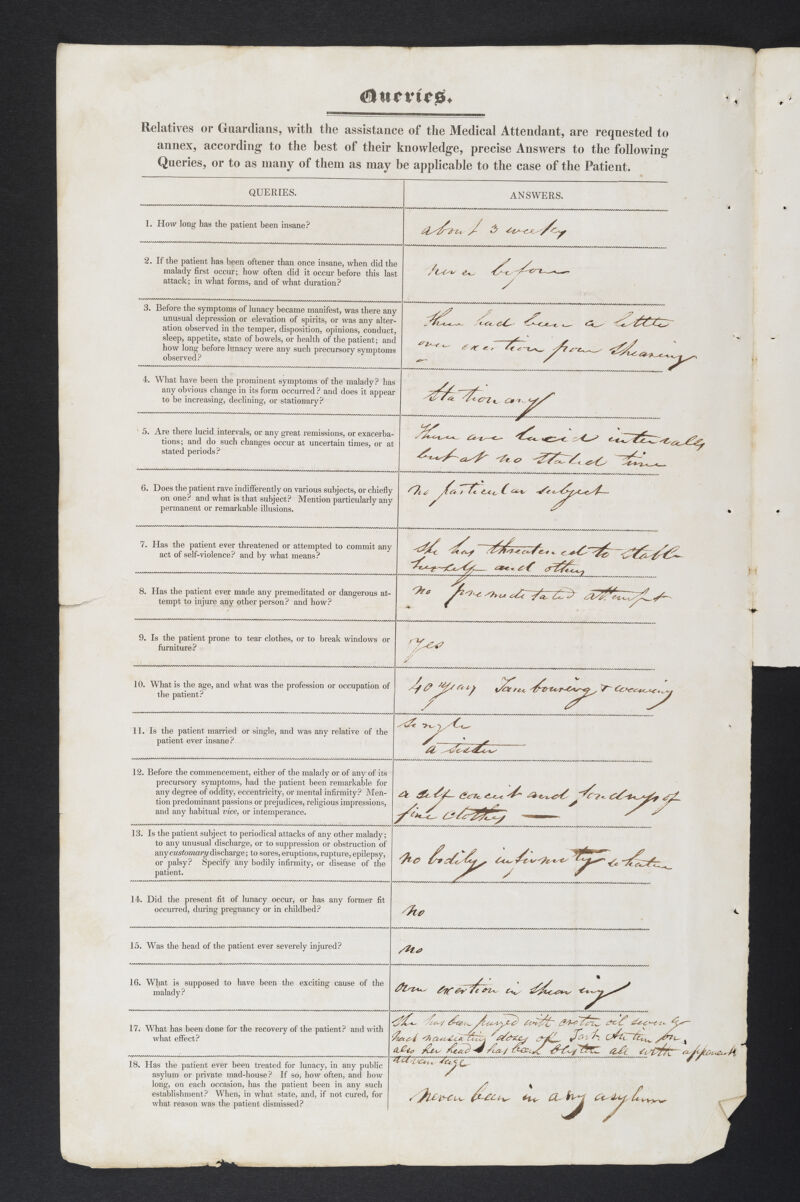 Queries.
Relatives or Guardians, with the assistance of the Medical Attendant, are requested to
annex, according to the best of their knowledge, precise Answers to the following
Queries, or to as many of them as may be applicable to the case of the Patient.
QUERIES.
ANSWERS.
1. How long has the patient been insane?
about 3 weeks
2. If the patient has been oftener than once insane, when did the
malady first occur; how often did it occur before this last
attack; in what forms, and of what duration?
never before
3. Before the symptoms of lunacy became manifest, was there any
unusual depression or elevation of spirits, or was any alter-
ation observed in the temper, disposition, opinions, conduct,
sleep, appetite, state of bowels, or health of the patient; and
how long before lunacy were any such precursory symptoms
observed?
there had been a little
over exertion from Shearing
4. What have been the prominent symptoms of the malady? has
any obvious change in its form occurred? and does it appear
to be increasing, declining, or stationary?
Stationary
5. Are there lucid intervals, or any great remissions, or exacerba-
tions; and do such changes occur at uncertain times, or at
stated periods?
There are lucid intervalls
but at no Stated time
6. Does the patient rave indifferently on various subjects, or chiefly
on one? and what is that subject? Mention particularly any
permanent or remarkable illusions.
no particular subject
7. Has the patient ever threatened or attempted to commit any
act of self-violence? and by what means?
She has threatened to Stabb
herself and others
8. Has the patient ever made any premeditated or dangerous at-
tempt to injure any other person? and how?
no premeditated attempt
9. Is the patient prone to tear clothes, or to break windows or
furniture?
yes
10. What is the age, and what was the profession or occupation of
the patient?
40 years Tambouring & weaving
11. Is the patient married or single, and was any relative of the
patient ever insane?
Single
a Sister
12. Before the commencement, either of the malady or of any of its
precursory symptoms, had the patient been remarkable for
any degree of oddity, eccentricity, or mental infirmity? Men-
tion predominant passions or prejudices, religious impressions,
and any habitual vice, or intemperance.
a self conceit and fondness of
fine Clothes
13. Is the patient subject to periodical attacks of any other malady;
to any unusual discharge, or to suppression or obstruction of
any customary discharge; to sores, eruptions, rupture, epilepsy,
or palsy? Specify any bodily infirmity, or disease of the
patient.
no bodily infirmity whatever
14. Did the present fit of lunacy occur, or has any former fit
occurred, during pregnancy or in childbed?
no
15. Was the head of the patient ever severely injured?
no
16. What is supposed to have been the exciting cause of the
malady?
over exertion in Shearing
17. What has been done for the recovery of the patient? and with
what effect?
She has been purged with croton oil
had nauseating doses of Tart.
also her head has been blister all with apparent
advantage
18. Has the patient ever been treated for lunacy, in any public
asylum or private mad-house? If so, how often, and how
long, on each occasion, has the patient been in any such
establishment? When, in what state, and, if not cured, for
what reason was the patient dismissed?
never been in any asylum